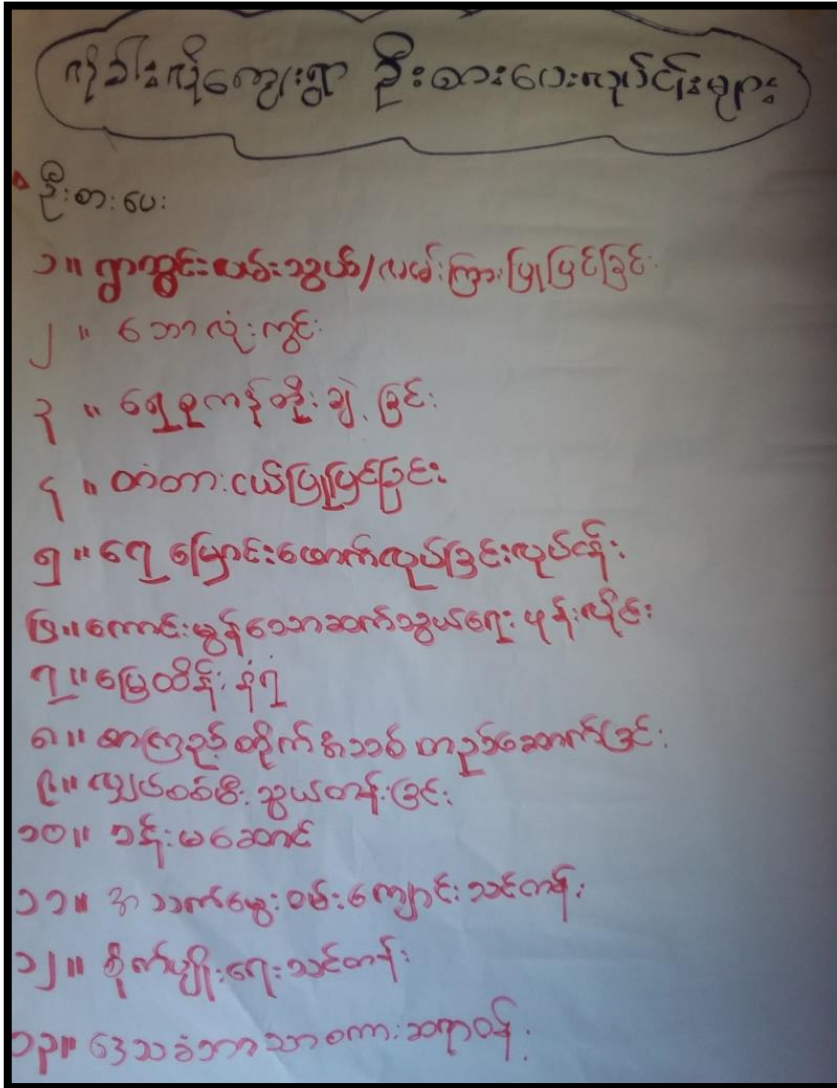 လိုင်းလိုကျေးရွာ ဦးစားပေးလုပ်ငန်းများ
ဦးစားပေး
၁။ ရွာတွင်းလမ်းသွယ်/လမ်းကြားပြုပြင်ခြင်း
၂။ ဘောလုံးကွင်း
၃။ ရေစုကန်တိုးချဲ့ခြင်း
၄။ တံတားငယ်ပြုပြင်ခြင်း
၅။ ရေမြောင်းဖောက်လုပ်ခြင်းလုပ်ငန်း
၆။ ကောင်းမွန်သောဆက်သွယ်ရေး ဖုန်းလိုင်း
၇။ မြေထိန်းနံရံ
၈။ စာကြည့်တိုက်အသစ်တည်ဆောက်ခြင်း
၉။ လျှပ်စစ်မီးသွယ်တန်းခြင်း
၁၀။ ခန်းမဆောင်
၁၁။ အသက်မွေးဝမ်းကျောင်းသင်တန်း
၁၂။ စိုက်ပျိုးရေးသင်တန်း
၁၃။ ဒေသခံဘာသာစကားဆရာဝန်